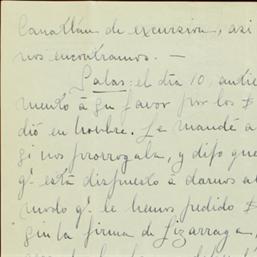 Canatlán de excursion, asi
nos encontramos. —
Salas: el día 10, antie
mento á su favor por los $
dió en hombre. Le mandé a
si nos prorrogaba, y dijo que
q.e está dispuesto á darnos al
modo q.e le hemos pedido $
sin la firma de Lizarraga,